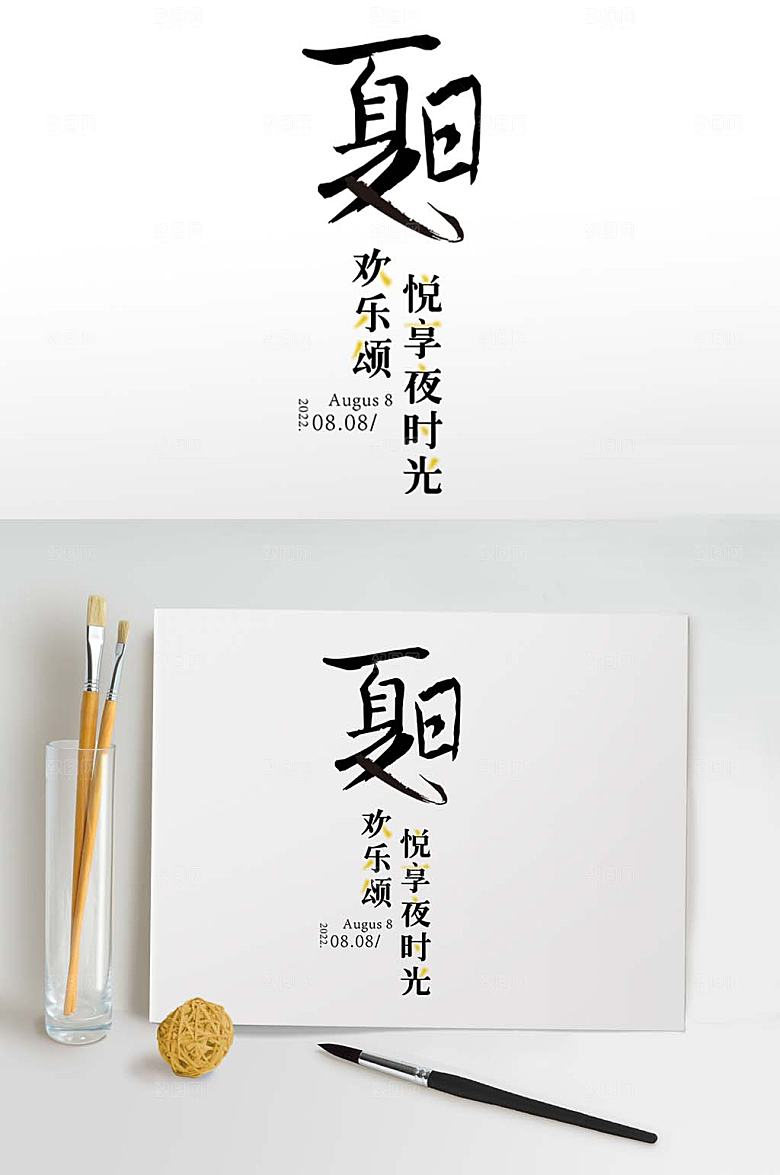 夏日
欢乐颂
悦享夜时光
Augus 8
2022.
08.08/
夏日
欢乐颂
悦享夜时光
Augus 8
2022.
08.08/